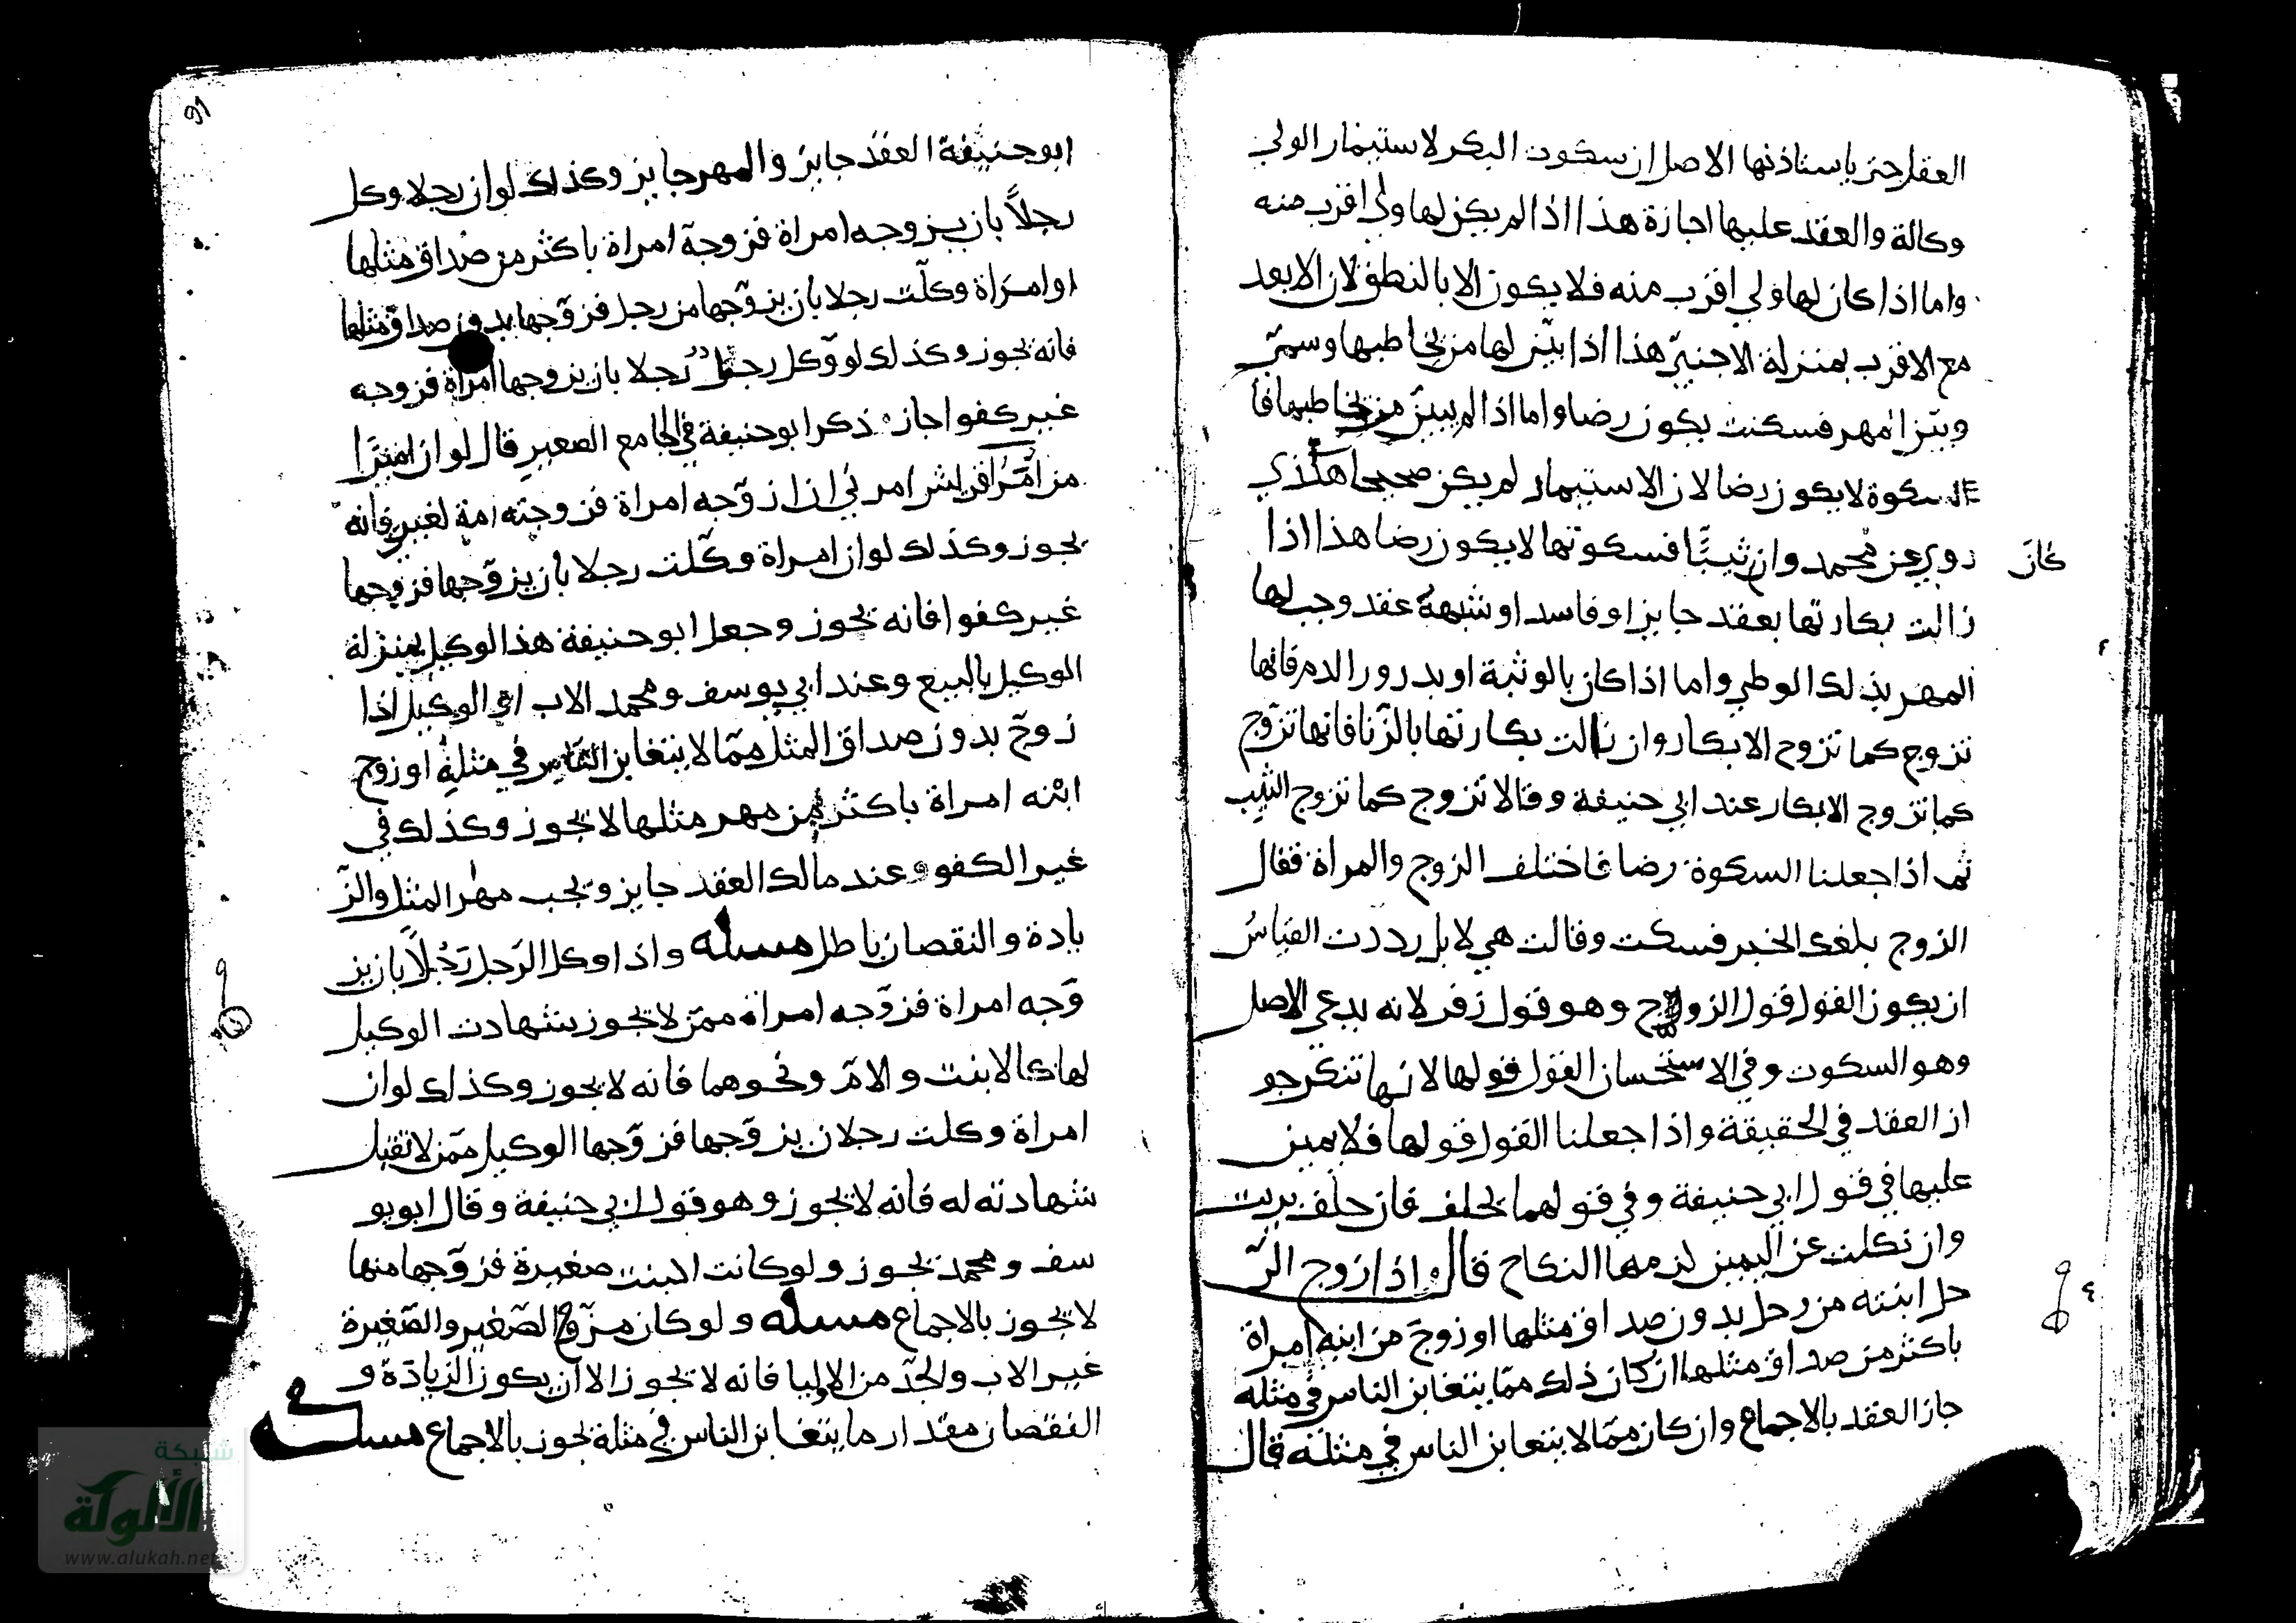 العقد حتى ياستاذنها الاصل ان سكوت البكر لاستيمار الولي
وكالة والعقد عليها اجازة هذا اذا لم يكن لها ولي اقرب منه
واما اذا كان لها ولي اقرب منه فلا يكون الا بالنطق لان الابعد
مع الاقرب بمنزلة الاجنبي هذا اذا بين لها من يخاطبها وسمى
وبين المهر فسكنت يكون رضا واما اذا لم يبين من يخاطبها فا
السكوة لا يكون رضا لان الاستيمار لم يكن صحيحا هكذي
روي عن محمد وان ثيبًا فسكوتها لا يكون رضا هذا اذا
كان
زالت بكارتها بعقد جايز او فاسد او شبهة عقد وجب لها
المهر بذلك الوطي واما اذا كان بالوثبة او بدرور الدم فانها
تزوج كما تزوج الابكار وان زالت بكارتها بالزّنا فانها تزوّج
كما تزوج الابكار عند ابي حنيفة وقالا تزوج كما تزوج الثيب
ثم اذا جعلنا السكوة رضا فاختلف الزوج والمراة فقال
الزوج بلغك الخبر فسكت وقالت هي لا بل رددت القياسُ
ان يكون القول قول الزوج وهو قول زفر لانه يدعي الاصل
وهو السكوت وفي الاستحسان القول قولها لانها تنكر جو
از العقد في الحقيقة واذا جعلنا القول قولها فلا يمين
عليها في قول ابي حنيفة وفي قولهما يحلف فان حلف بريت
وان نكلت عن اليمين لزمها النكاح قال واذا زوج الرّ
جل ابنته من رجل بدون صداق مثلها او زوج من ابنه امراة
باكثر من صداق مثلها ان كان ذلك ممّا يتغابن الناس في مثله
جاز العقد بالاجماع وان كان ممّا لا يتغابن الناس في مثله قال
91
ابو حنيفة العقد جايز والمهر جايز وكذلك لو ان رجلا وكل
رجلاً بان يزوجه امراة فزوجه امراة باكثر من صداق مثلها
او امراة وكلّت رجلا بان يزوّجها من رجل فزوّجها بدون صداق مثلها
فانه يجوز وكذلك لو وكل رجل رجلا بان يزوجها امراة فزوجه
غير كفوا جاز ذكر ابو حنيفة في الجامع الصغير قال لو ان اميرًا
من امرا قريش امرني ان ازوّجه امراة فزوجته امة لغيري فانه
يجوز وكذلك لو ان امراة وكّلت رجلا بان يزوّجها فزوجها
غير كفوا فانه يجوز وجعل ابو حنيفة هذا الوكيل بمنزلة
الوكيل بالبيع وعند ابي يوسف ومحمد الاب او الوكيل اذا
زوّج بدون صداق المثل ممّا لا يتغابن النّاس في مثله او زوج
ابنه امراة باكثر من مهر مثلها لا يجوز وكذلك في
غير الكفو وعند مالك العقد جايز ويجب مهر المثل والزّ
يادة والنقصان باطل مسله واذا وكل الرّجل رَجُلاً بان يز
وّجه امراة فزوّجه امراة ممّن لا يجوز بشهادت الوكيل
لها كالابنت والامّ ونحوهما فانه لا يجوز وكذلك لو ان
امراة وكلت رجلان يزوّجها فزوّجها الوكيل ممّن لا تقبل
شهادته له فانه لا يجوز وهو قول ابي حنيفة وقال ابو يو
سف ومحمد يجوز ولو كانت البنت صغيرة فزوّجها منها
لا يجوز بالاجماع مسله ولو كان مزوّج الصّغير والصّغيرة
غير الاب والجدّ من الاوليا فانه لا يجوز الا ان يكون الزّيادة و
النقصان مقدار ما يتغابن الناس في مثله يجوز بالاجماع مسله
شبكة
الألوكة
www.alukah.net